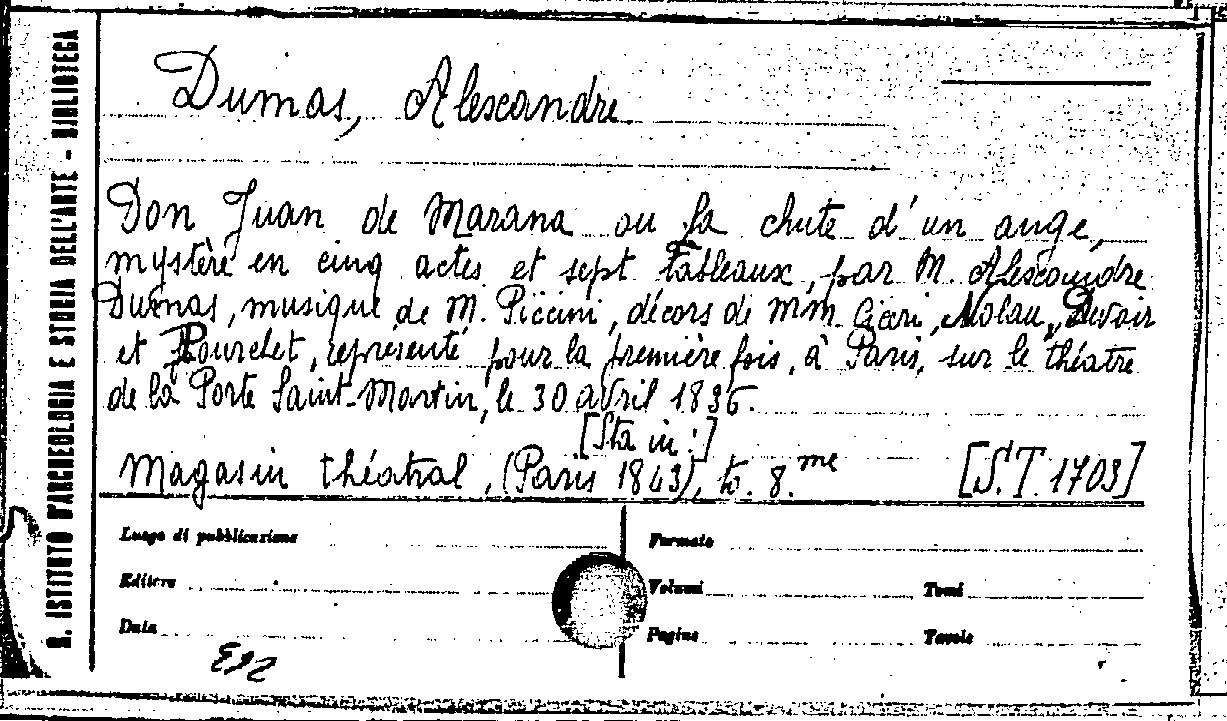 R. ISTITUTO D'ARCHEOLOGIA E STORIA DELL'ARTE - BIBLIOTECA
Dumas, Alexandre.
Don Juan de Marana ou la chute d'un ange,
mystère en cinq actes et sept tableaux, par M. Alexandre
Dumas, musique de M. Piccini, décors de mm Cicéri,
et Pourchet, représenté pour la première fois, à Paris, sur le théatre
de la Porte Saint-Martin, le 30 avril 1836.
[Sta in:]
Magasin théatral, (Paris 1843), to. 8.me [S.T. 1703]
Luogo di pubblicazione
Formato
Editore
Volumi
Tomi
Data
Pagine
Tavole